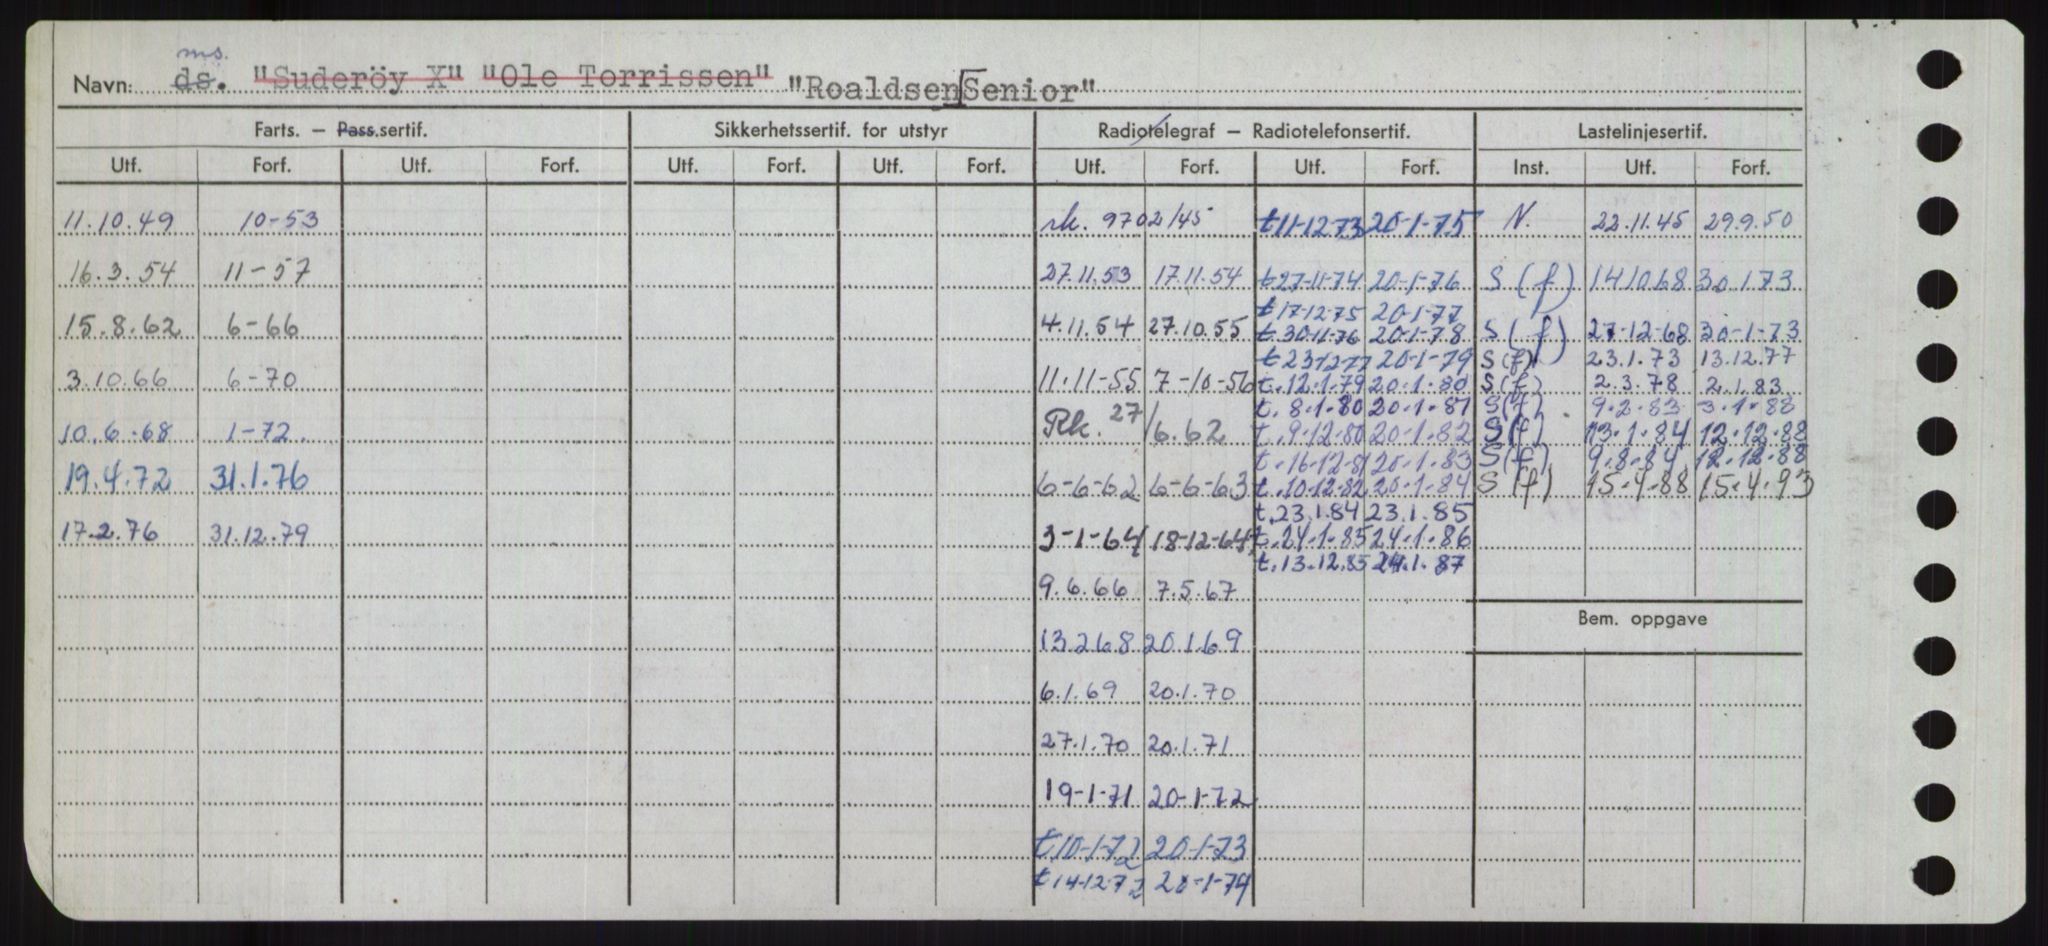 ms.
Navn: ds. "Suderöy X" "Ole Torrissen" "Roaldsen Senior"
Farts. — Pass.sertif. Sikkerhetssertif. for utstyr Radiotelegraf — Radiotelefonsertif. Lastelinjesertif.
Utf. Forf. Utf. Forf. Utf. Forf. Utf. Forf. Utf. Forf. Utf. Forf. Inst. Utf. Forf.
11.10.49 10-53 rk. 9702/45 t11-12-73 20-1-75 N. 22.11.45 29.9.50
16.3.54 11-57 27.11.53 17.11.54 t27-11-74 20-1-76 S (f) 141068 30.1.73
t17-12-75 20-1-77
15.8.62 6-66 4.11.54 27.10.55 t.30-11-76 20-1-78 S (f) 27-12-68 30-1-73
t 23-12-77 20-1-79 S (f) 23.1.73 13.12.77
3.10.66 6-70 11.11-55 7-10-56 t.12.1.79 20.1.80 S (f) 2.3.78 2.1.83
t. 8.1.80 20.1.81 S (f) 9.2.83 3.1.88
10.6.68 1-72. Rk. 27/6.62 t. 9.12.80 20.1.82 S (f) 13.1.84 12.12.88
t. 16.12.81 20.1.83 S (f) 9.8.84 12.12.88
19.4.72 31.1.76 6-6-62 6-6-63 t. 10.12.82 20.1.84 S (f) 15.4.88 15.4.93
t. 23.1.84 23.1.85
17.2.76 31.12.79 3-1-64 18-12-64 t. 24.1.85 24.1.86
t. 13.12.85 24.1.87
9.6.66 7.5.67
Bem. oppgave
13.2.68 20.1.69
6.1.69 20.1.70
27.1.70 20.1.71
19-1-71 20-1-72
t.10-1-72 20-1-73
t 14-12-72 20-1-74